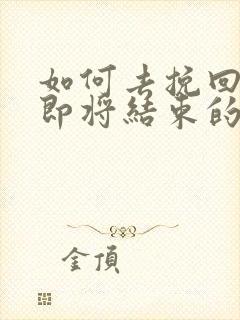 如何去挽回
即将結束的
金頂